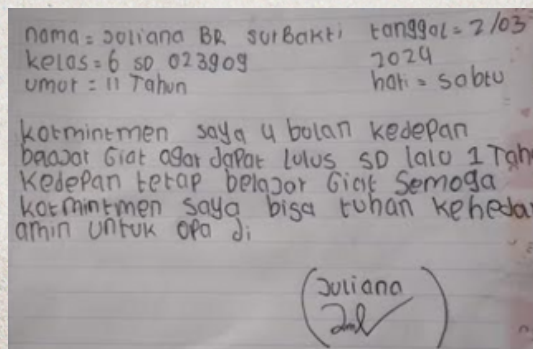 nama = Juliana BR SurBakti tanggal = 2/03
kelas = 6 SD 023909 2024
umur = 11 Tahun hari = sabtu
kotmintmen saya 4 bulan kedepan
belajar Giat agar dapat lulus SD lalu 1 Tah
kedepan tetap belajar Giat Semoga
kotmintmen saya bisa tuhan keheda
amin untuk apa di
(Juliana)